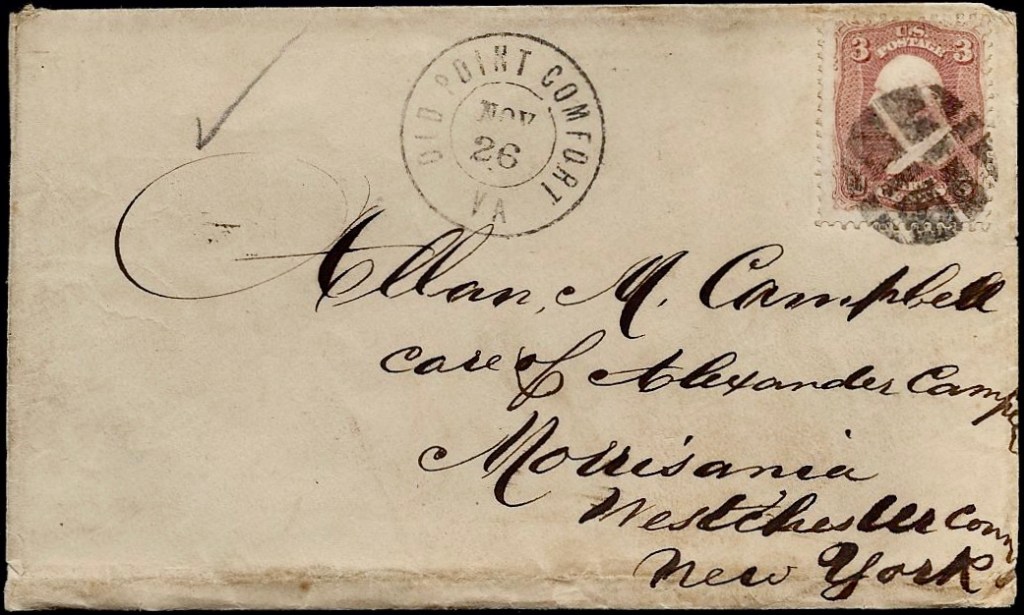 OLD POINT COMFORT
NOV
26
VA
3 U.S. 3
POSTAGE
Allan, M. Campbell
care of Alexander Campbell
Morrisania
Westchester
New York